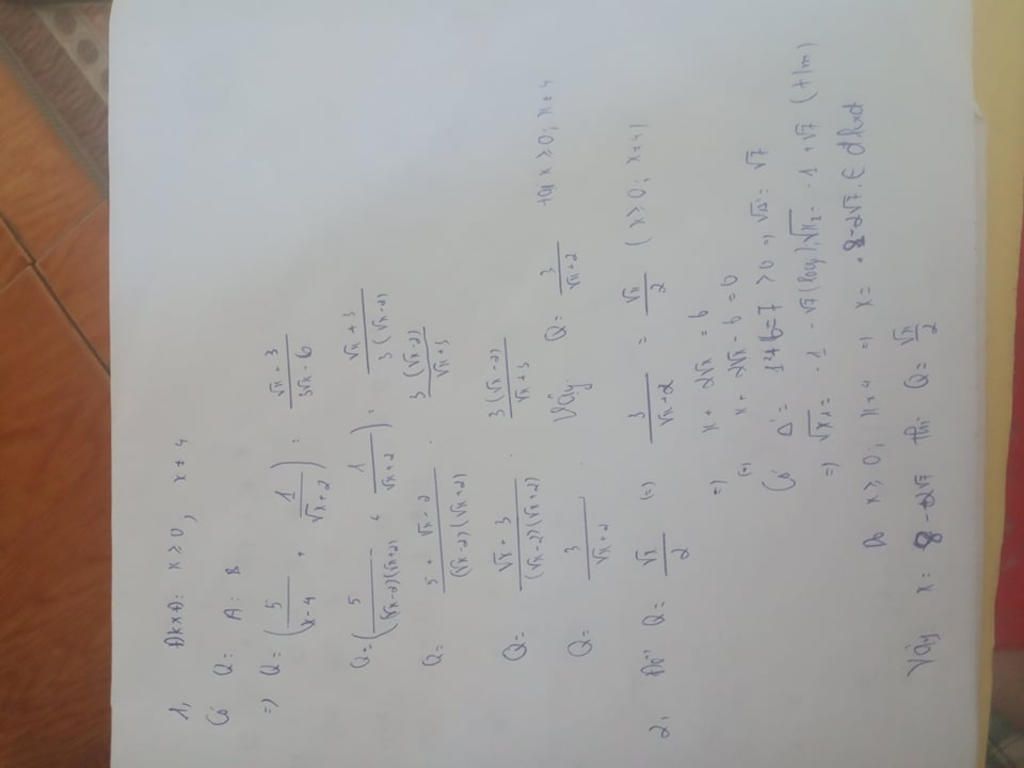 1, ĐKXĐ: x ≥ 0, x ≠ 4
Có Q = A : B
=) Q = (5/(x-4) + 1/(√x+2)) : (√x-3)/(3√x-6)
Q = (5/((√x-2)(√x+2)) + 1/(√x+2)) : (√x+3)/(3(√x-2))
Q = (5+√x-2)/((√x-2)(√x+2)) . 3(√x-2)/(√x+3)
Q = (√x+3)/((√x-2)(√x+2)) . 3(√x-2)/(√x+3)
Q = 3/(√x+2) . Vậy Q = 3/(√x+2) tại x ≥ 0; x ≠ 4
2, Để Q = √x/2 (=) 3/(√x+2) = √x/2 (x ≥ 0; x ≠ 4)
=) x + 2√x = 6
(=) x + 2√x - 6 = 0
Có Δ' = 1+6=7 > 0 =) √Δ' = √7
=) √x1 = -1 - √7 (loại); √x2 = -1 + √7 (t/m)
Do x ≥ 0; x ≠ 4 =) x = 8-2√7 ∈ đkxđ
Vậy x = 8-2√7 thì Q = √x/2